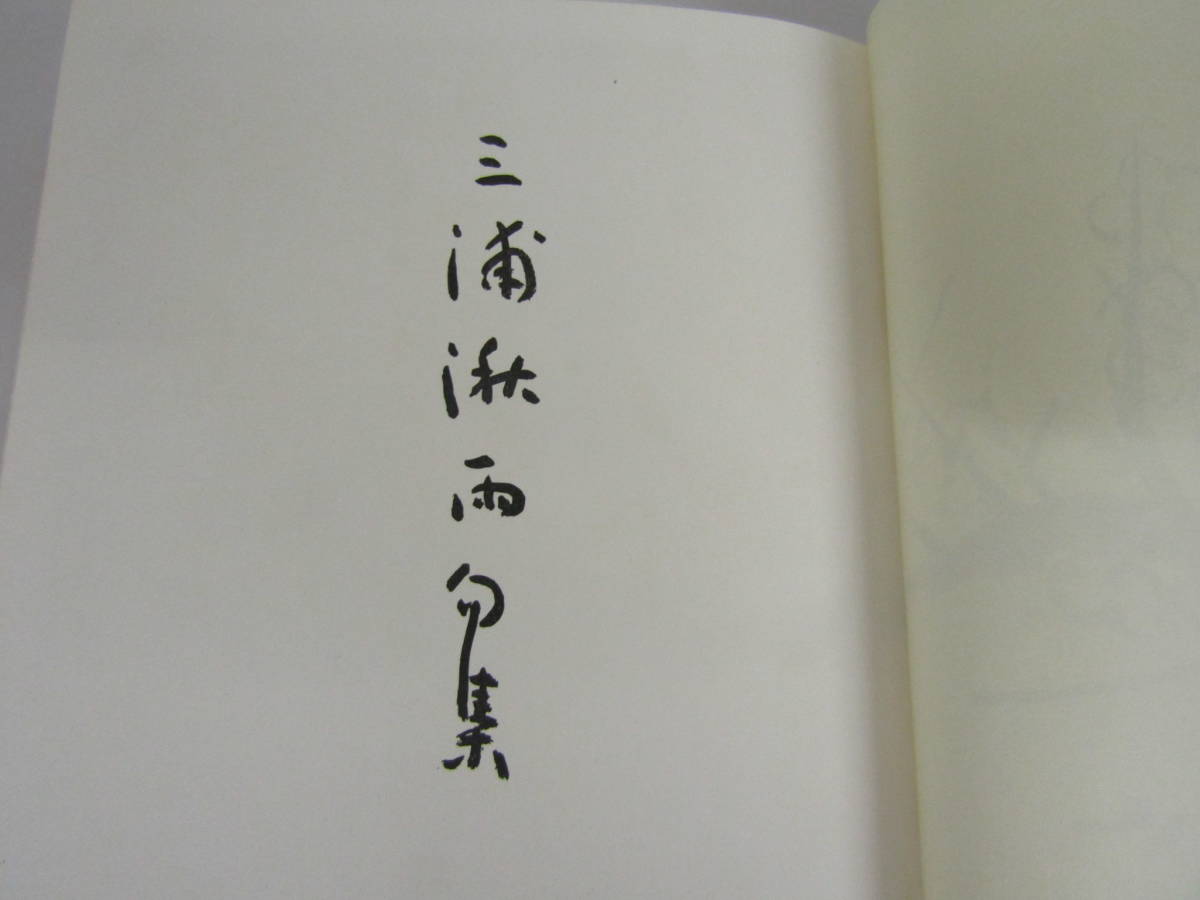 三浦湫雨句集